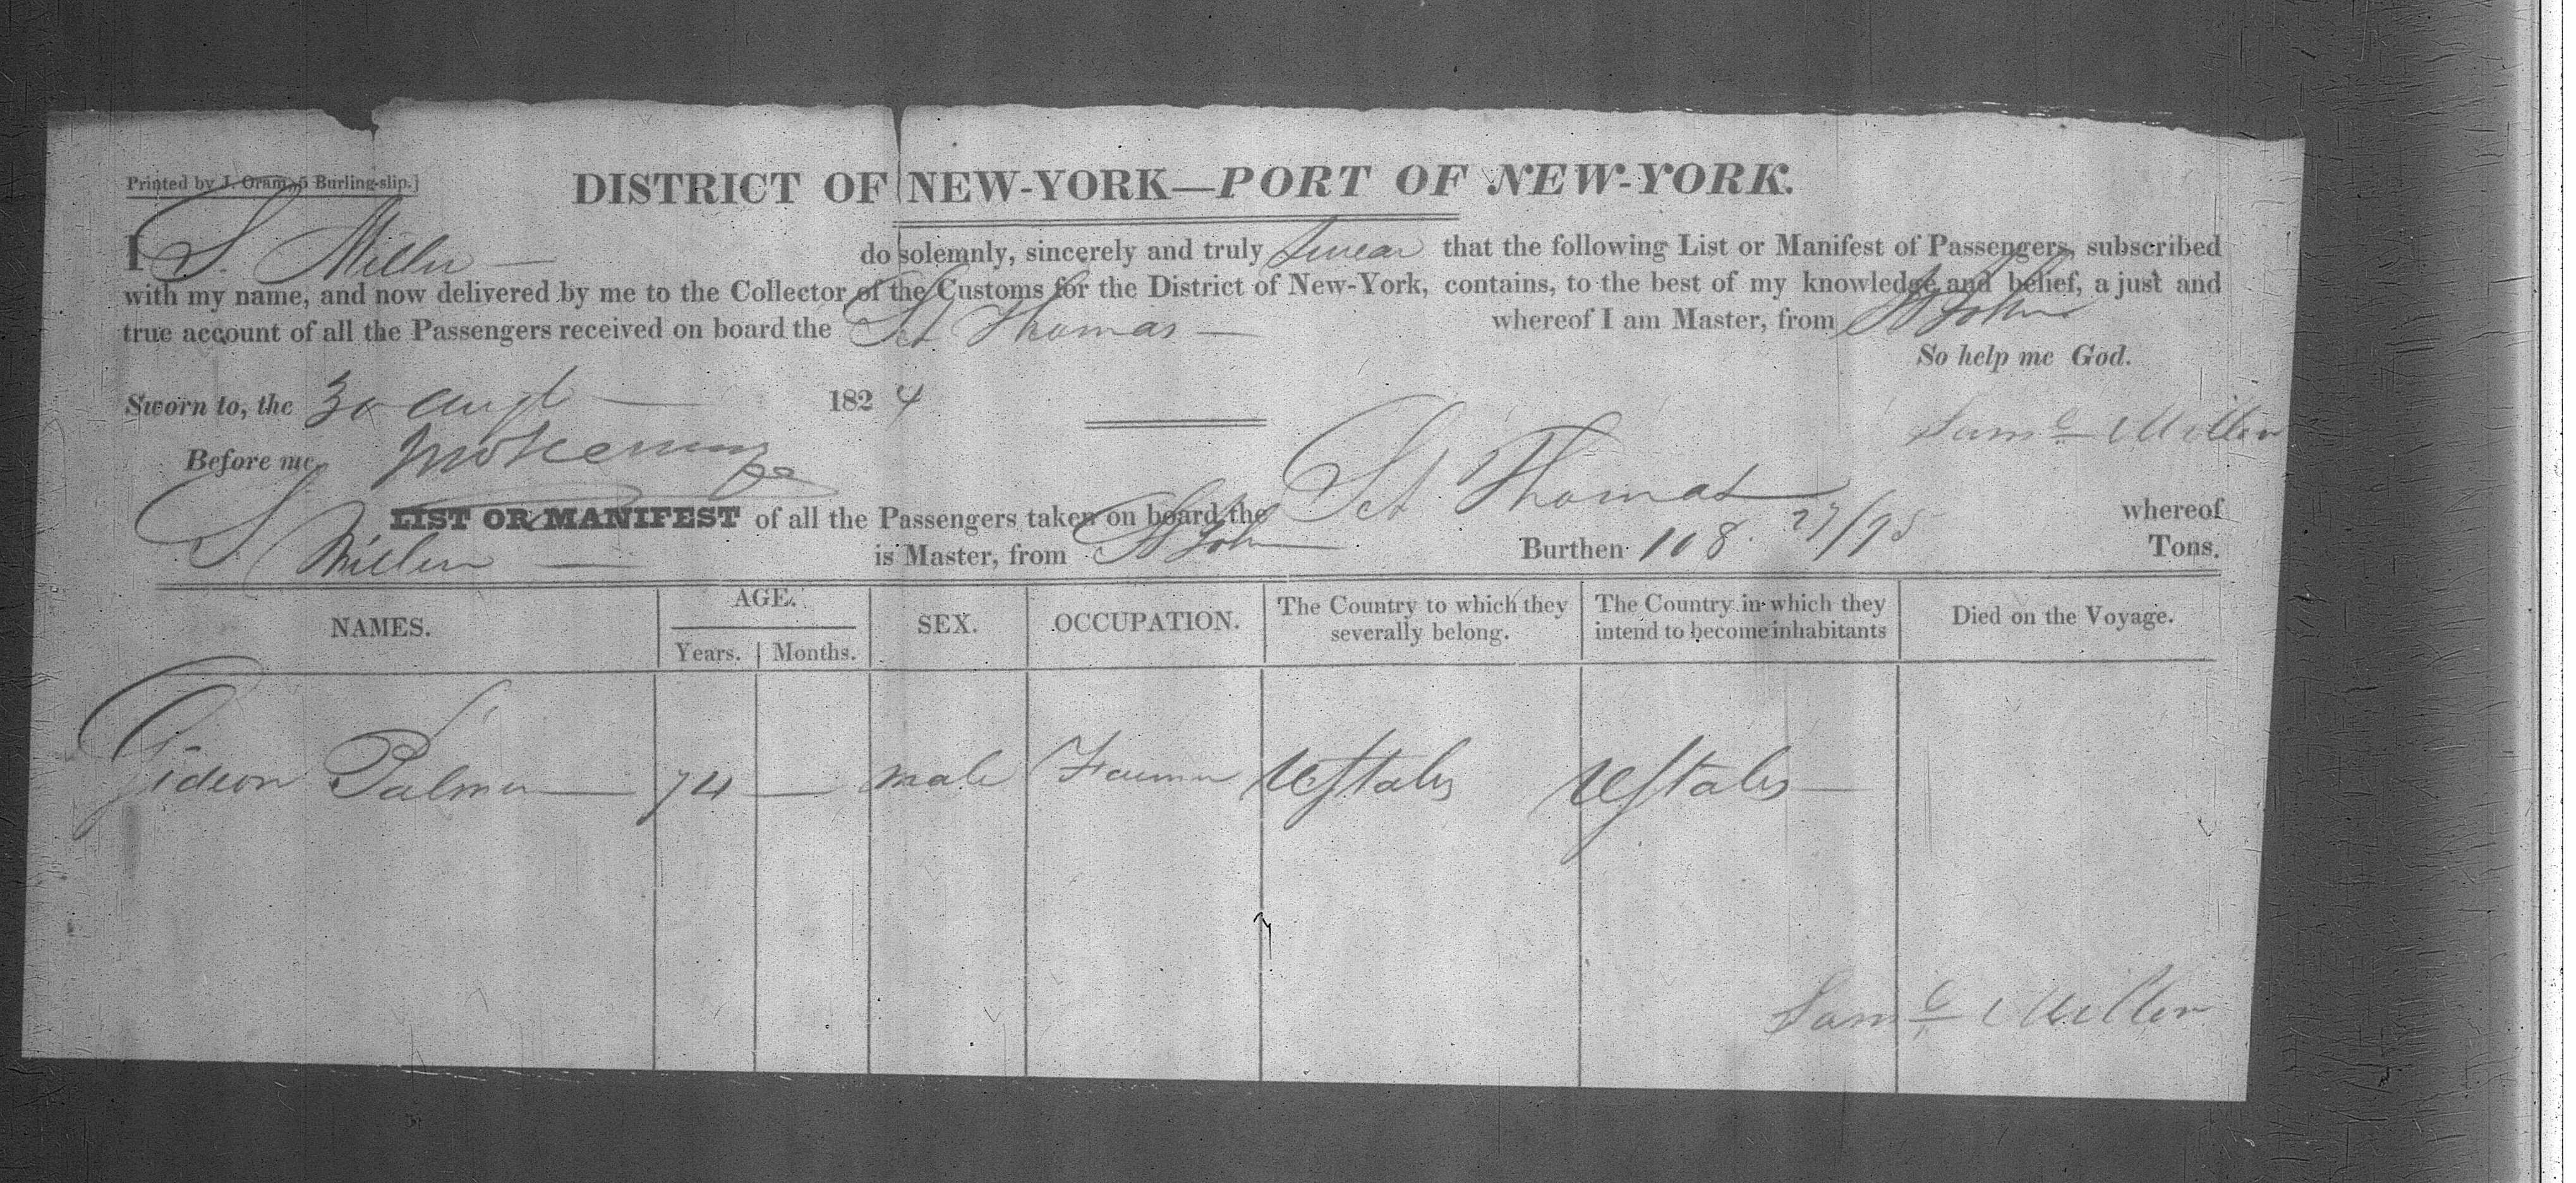 Printed by J. Oram, 5 Burling-slip.]
DISTRICT OF NEW-YORK—PORT OF NEW-YORK.
I S. Miller — do solemnly, sincerely and truly swear that the following List or Manifest of Passengers, subscribed
with my name, and now delivered by me to the Collector of the Customs for the District of New-York, contains, to the best of my knowledge and belief, a just and
true account of all the Passengers received on board the Thomas — whereof I am Master, from St Johns
So help me God.
Sworn to, the 30 augt — 1824
Saml Miller
Before me,
LIST OR MANIFEST of all the Passengers taken on board the Thomas whereof
S Miller — is Master, from St John Burthen 108 27/95 Tons.
NAMES. AGE. SEX. OCCUPATION. The Country to which they severally belong. The Country in which they intend to become inhabitants Died on the Voyage.
Years. Months.
Gideon Palmer — 74 — male Farmer UStates UStates —
Saml Miller